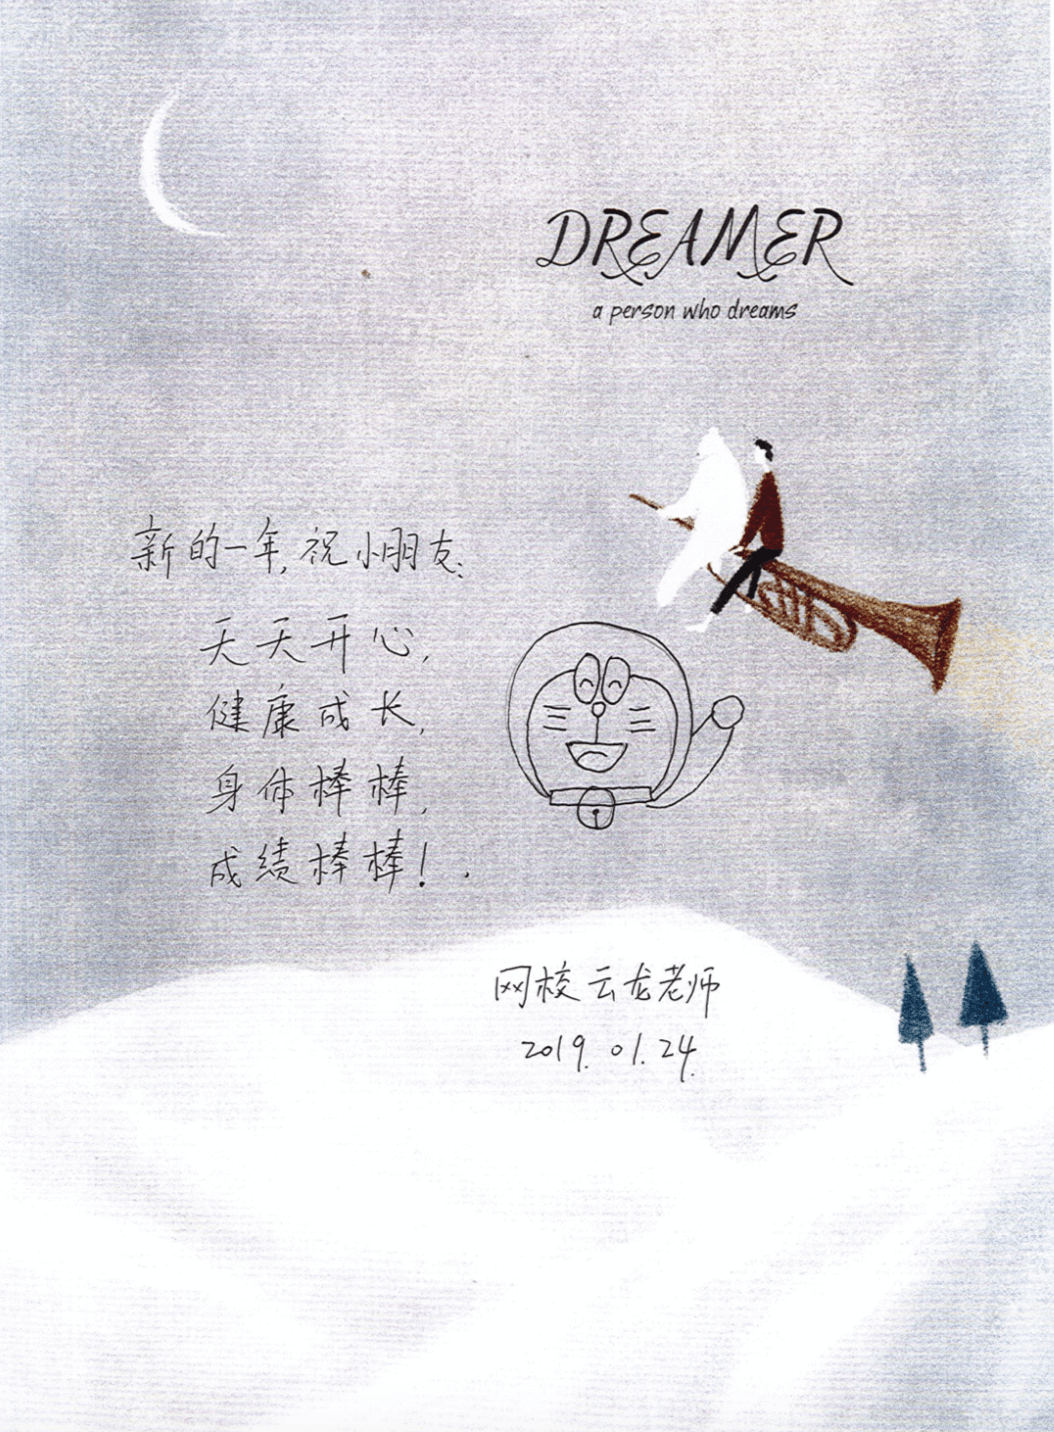 DREAMER
a person who dreams
新的一年,祝小朋友:
天天开心,
健康成长,
身体棒棒,
成绩棒棒!
网校云龙老师
2019.01.24